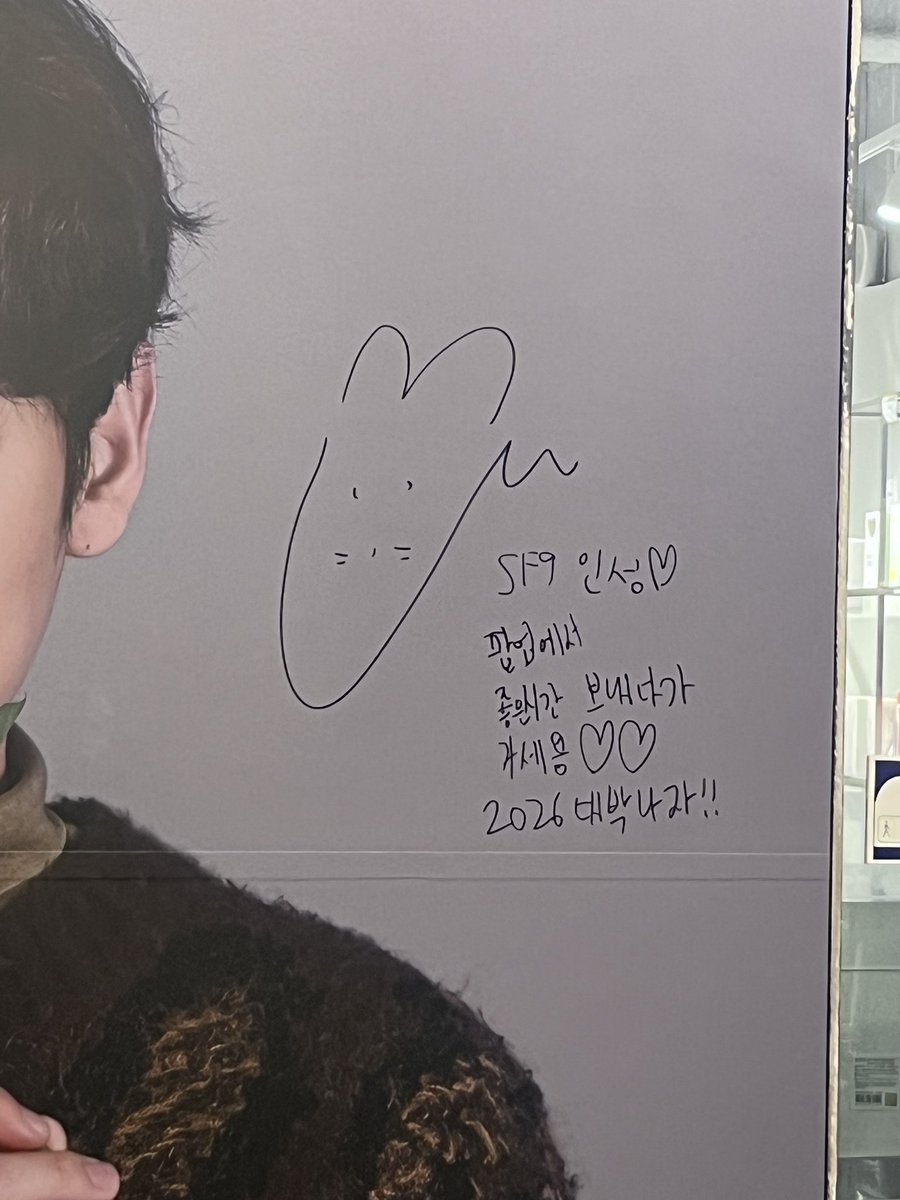 SF9 인성♡
팝업에서
좋은시간 보내다가
가세용 ♡♡
2026 대박나자!!